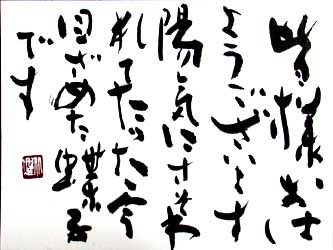 皆様、おは
ようございます
陽気にさそわ
れてたった今
目ざめた蝶
です